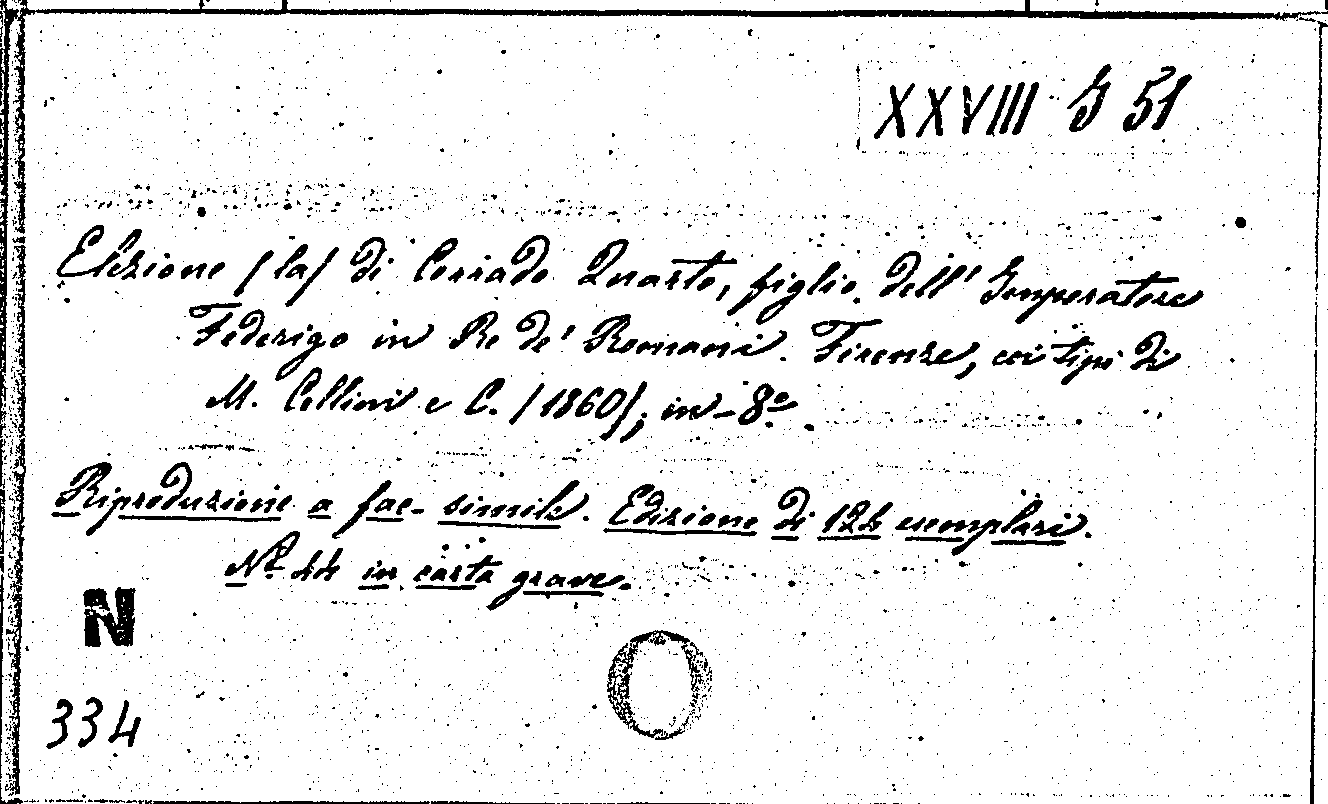 XXVIII G 51
Elezione (la) di Corrado Quarto, figlio dell' Imperatore
Federigo in Re de' Romani. Firenze, coi tipi di
M. Cellini e C. (1860); in-8º.
Riproduzione a fac-simile. Edizione di 124 esemplari.
Nº. 44 in carta grave.
N
334